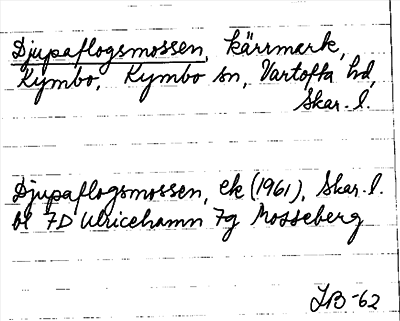 Djupaflogsmossen, kärrmark,
Kymbo, Kymbo sn, Vartofta hd,
Skar. l.
Djupaflogsmossen, ek (1961), Skar. l.
bl 7D Ulricehamn 7g Mosseberg
JB-62